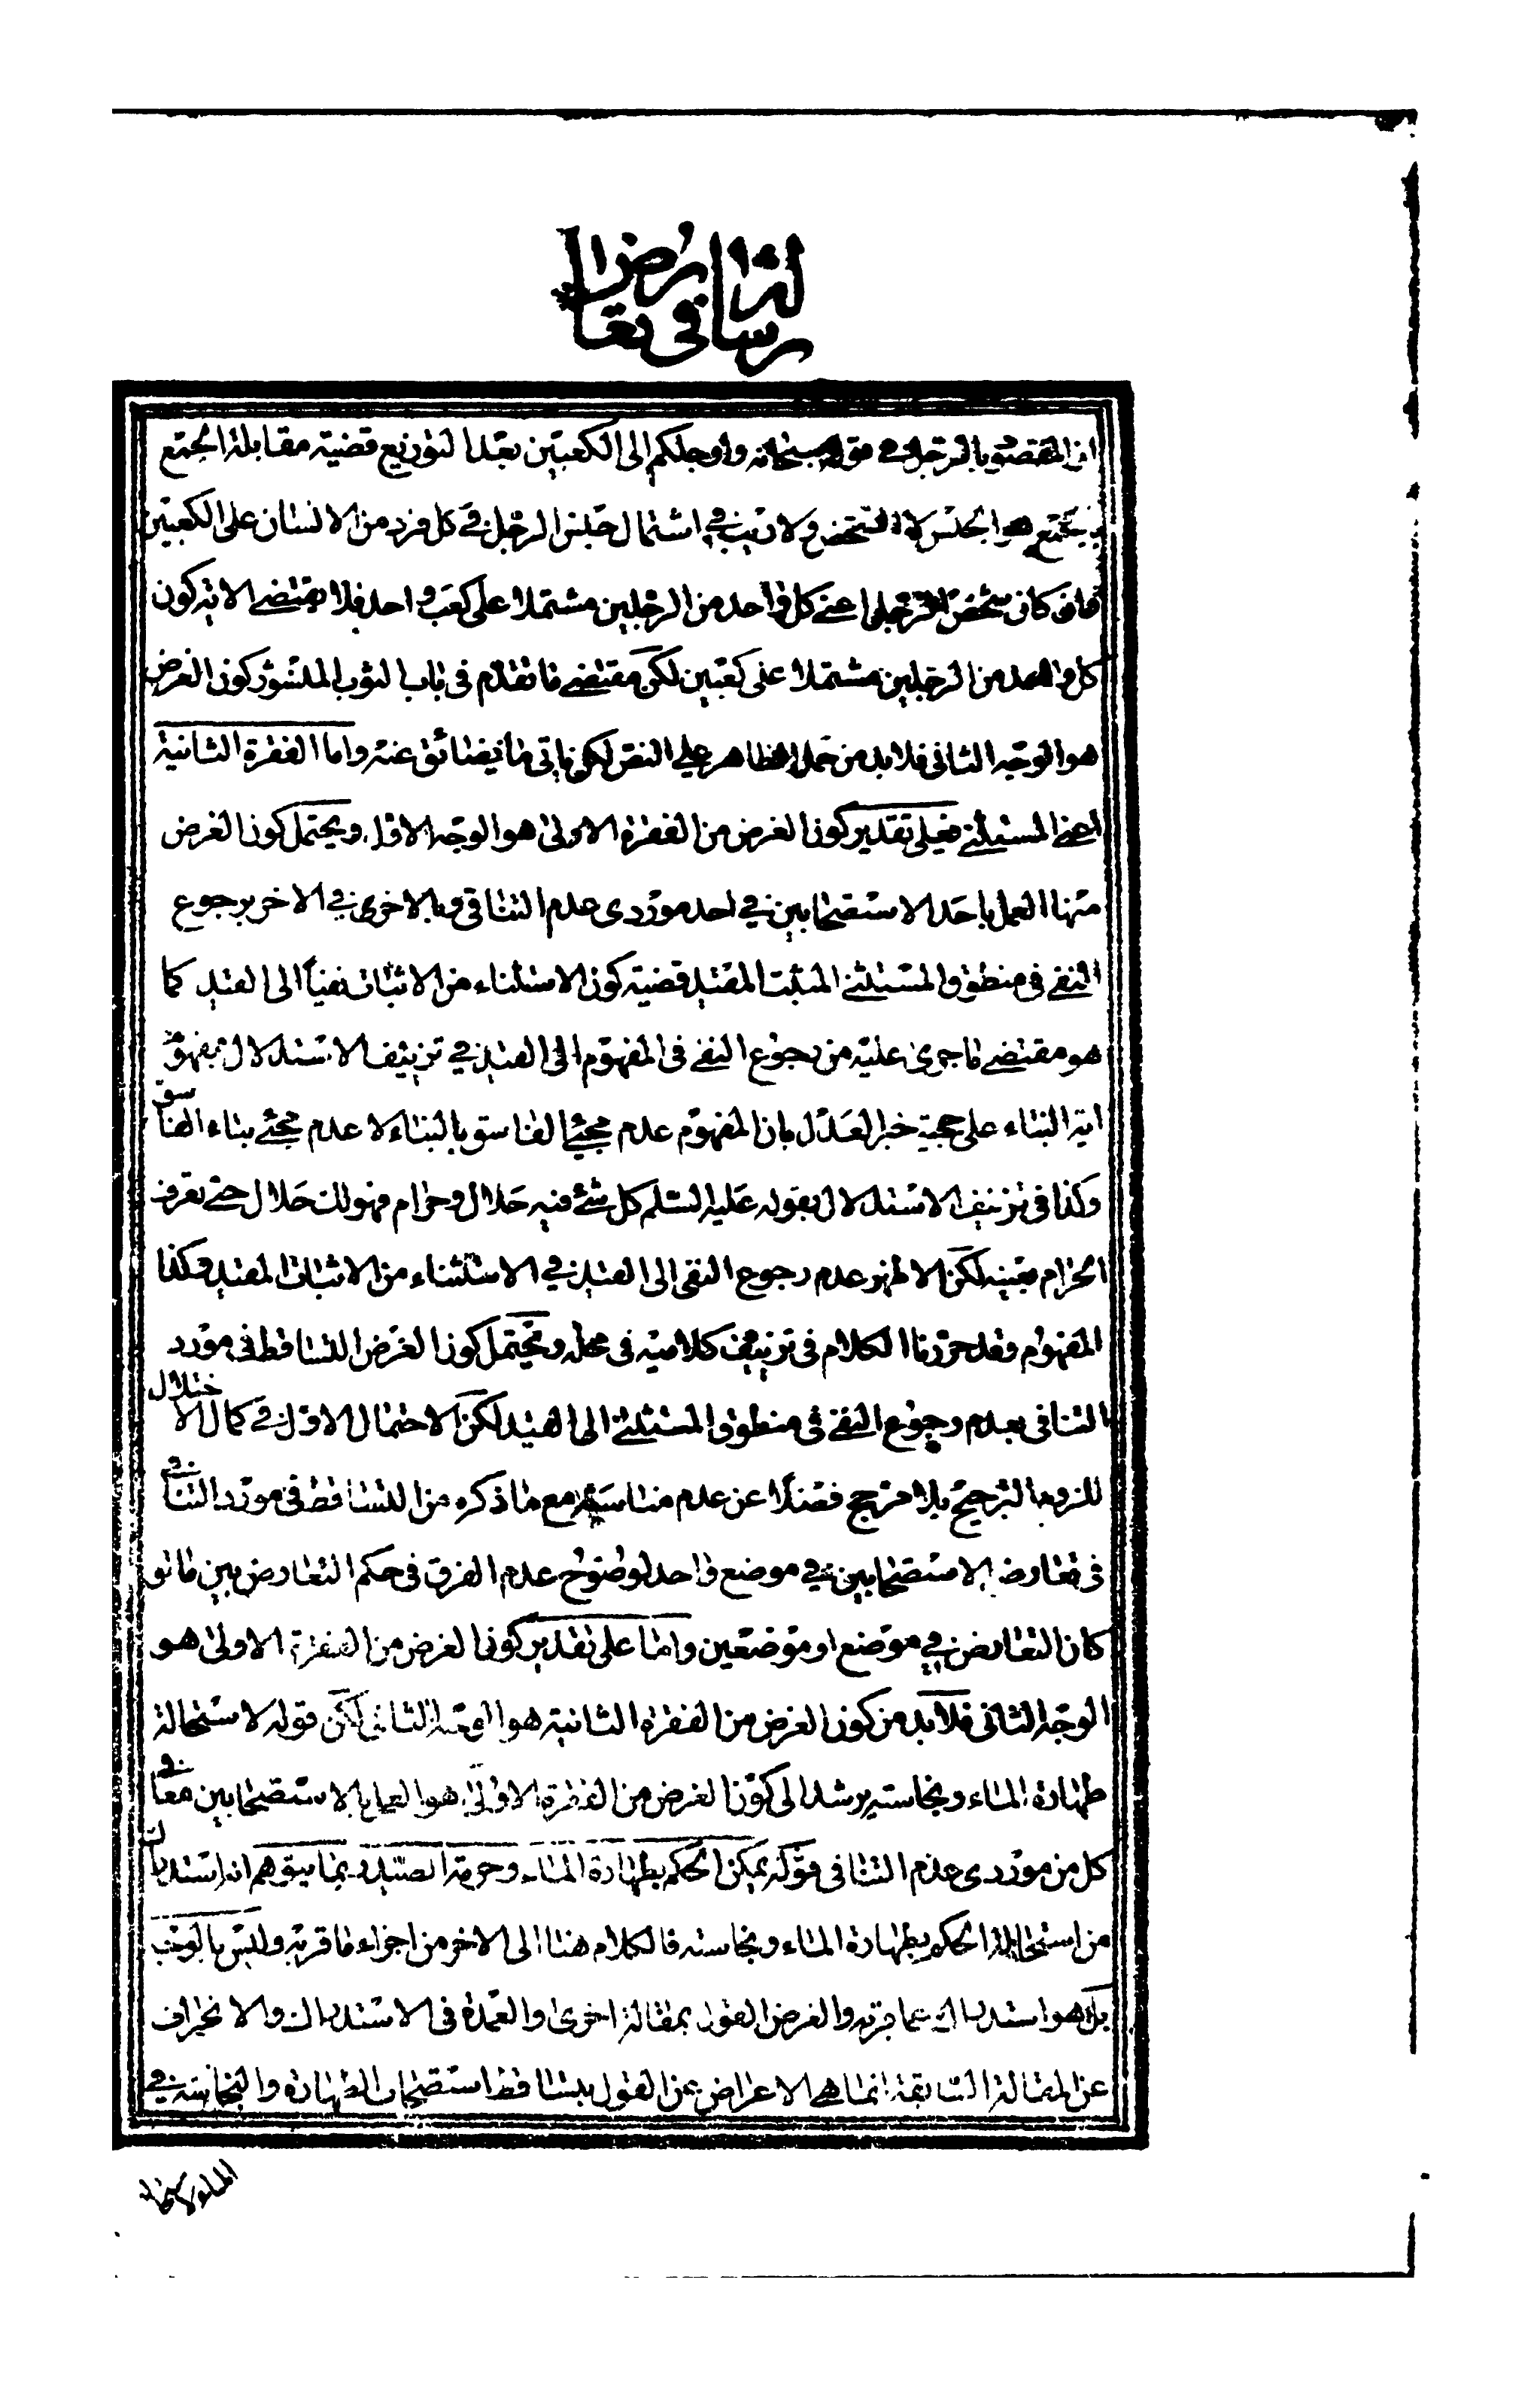 رسالة في تعارض ال
ان المقصود بالرجل في قوله سبحانه وارجلكم الى الكعبين بعد التوزيع قضية مقابلة الجمع
بالجمع هو الجنس لا الشخص ولا ريب في اشتمال جنس الرجل في كل فرد من الانسان على الكعبين
فان كان شخص الرجل اعني كل واحد من الرجلين مشتملا على كعب واحد فلا يقتضي الاية كون
كل واحد من الرجلين مشتملا على كعبين لكن مقتضى ما تقدم في باب الثوب كون الغرض
هو الوجه الثاني فلا بد من حمل الظاهر على النص لكن ياتي ما يضائق عنه واما الفقرة الثانية
اعني المستثنى فعلى تقدير كون الغرض من الفقرة الاولى هو الوجه الاول ويحتمل كون الغرض
منها العمل باحد الاستصحابين في احد موردي عدم التنافي وبالاخرى في الاخر برجوع
النفي في منطوق المستثنى المثبت المقيد قضية كون الاستثناء من الاثبات نفيا الى القيد كما
هو مقتضى ما جرى عليه من رجوع النفي في المفهوم الى القيد في تزييف الاستدلال بمفهوم
اية النباء على حجية خبر العدل بان المفهوم عدم مجيئ الفاسق بالنباء لا عدم مجيئ بناء الفاسق
وكذا في تزييف الاستدلال بقوله عليه السلم كل شئ فيه حلال وحرام فهو لك حلال حتى تعرف
الحرام بعينه لكن الاظهر عدم رجوع النفي الى القيد في الاستثناء من الاثبات المقيد وكذا
المفهوم وقد حررنا الكلام في تزييف كلاميه في محله ويحتمل كون الغرض التساقط في مورد
التنافي بعدم رجوع النفي في منطوق المستثنى الى القيد لكن الاحتمال الاول في كمال الاختلال
للزوم الترجيح بلا مرجح فضلا عن عدم مناسبته مع ما ذكره من التساقط في مورد التنافي
في تعارض الاستصحابين في موضع واحد لوضوح عدم الفرق في حكم التعارض بين ما لو
كان التعارض في موضع او موضعين واما على تقدير كون الغرض من الفقرة الاولى هو
الوجه الثاني فلا بد من كون الغرض من الفقرة الثانية هو الوجه الثاني لكن قوله لاستحالة
طهارة الماء ونجاسته يرشد الى كون الغرض من الفقرة الاولى هو العمل بالاستصحابين معا في
كل من موردي عدم التنافي قوله يمكن الحكم بطهارة الماء وحرمة الصيد ربما يتوهم انه استدراك
من استحالة الحكم بطهارة الماء ونجاسته فالكلام هنا الى الاخر من اجزاء ما قربه وليس بالوجه
بل هو استدراك عما قربه والغرض القول بمقالة اخرى والعمدة في الاستدراك والانحراف
عن المقالة السابقة انما هي الاعراض عن القول بتساقط استصحاب الطهارة والنجاسة في